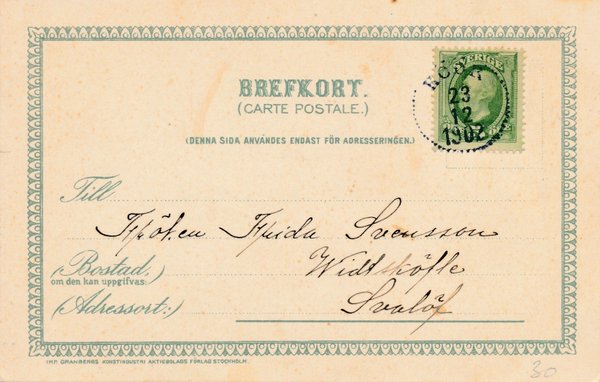 BREFKORT.
(CARTE POSTALE.)
(DENNA SIDA ANVÄNDES ENDAST FÖR ADRESSERINGEN.)
SVERIGE
23
12
1902
Till
Fröken Frida Svensson
(Bostad,
om den kan uppgifvas:)
Widtsköfle
(Adressort:)
Svalöf
IMP. GRANBERGS KONSTINDUSTRI AKTIEBOLAGS FÖRLAG STOCKHOLM.
30